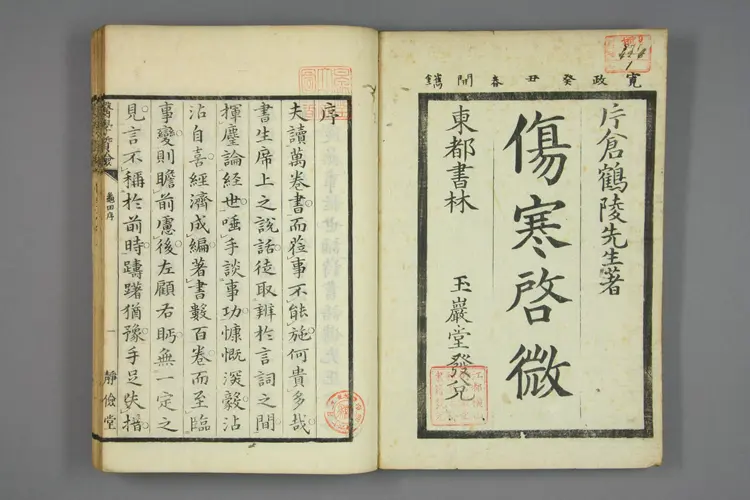 寛政癸丑春開鐫
片倉鶴陵先生著
傷寒啓微
東都書林 玉巖堂發兌
序
夫讀萬卷書而蒞事不能施何貴多哉
書生席上之說話徒取辨於言詞之間
揮麈論經世唾手談事功慷慨淡毅沾
沾自喜經濟成編著書數百卷而至臨
事變則瞻前慮後左顧右眄無一定之
見言不稱於前時躊躇猶豫手足失措
靜儉堂